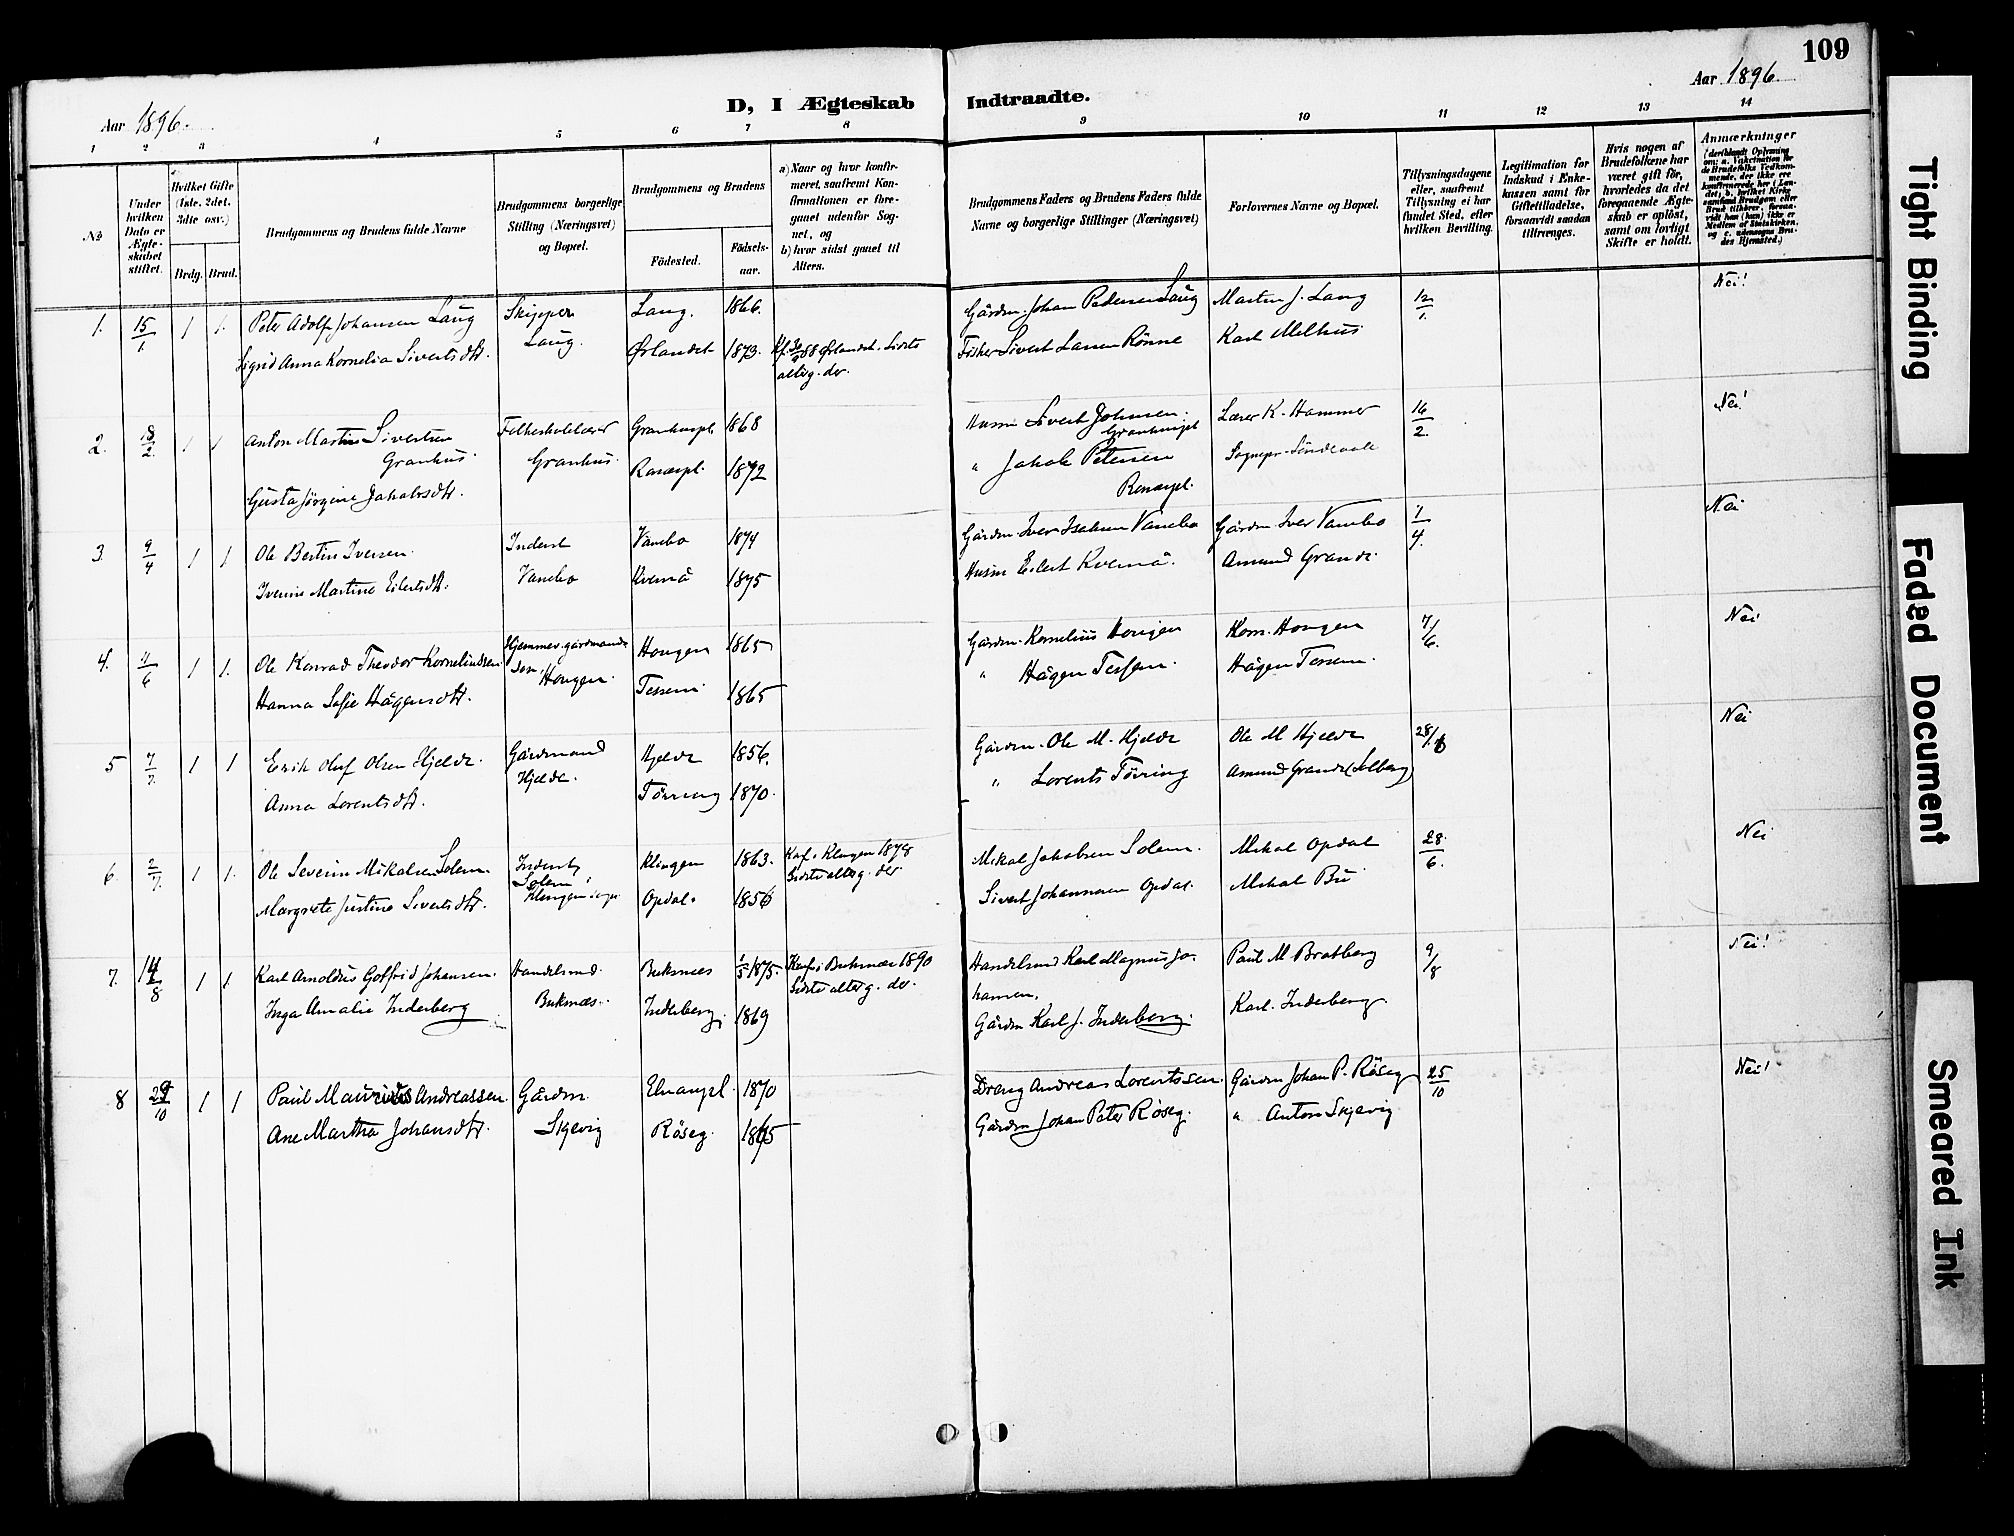 109
Aar 1896.
D, I Ægteskab Indtraadte.
Aar 1896.
1 2 3 4 5 6 7 8 9 10 11 12 13 14
No
Under hvilken Dato er Ægteskabet stiftet.
Hvilket Gifte (1ste, 2det, 3die osv.)
Brdg. Brud.
Brudgommens og Brudens fulde Navne
Brudgommens borgerlige Stilling (Næringsvei) og Bopæl.
Brudgommens og Brudens
Födested. Födselsaar.
a) Naar og hvor konfirmeret, saafremt Konfirmationen er foregaaet udenfor Sognet, og
b) hvor sidst gaaet til Alters.
Brudgommens Faders og Brudens Faders fulde Navne og borgerlige Stillinger (Næringsvei)
Forlovernes Navne og Bopæl.
Tillysningsdagene eller, saafremt Tillysning ei har fundet Sted, efter hvilken Bevilling.
Legitimation for Indskud i Enkekassen samt for Giftetilladelse, forsaavidt saadan tiltrænges.
Hvis nogen af Brudefolkene har været gift för, hvorledes da det foregaaende Ægteskab er oplöst, samt om lovligt Skifte er holdt.
Anmærkninger
1. 15/1 1 1. Peter Adolf Johansen Laug Skipper Laug. 1866. Gårdm. Johan Pedersen Laug Martin J. Laug 12/1. Nei!
Sigrid Anna Kornelia Sivertsdtr. Laug. Ørlandet 1873. Ørlandet. Sidste Fisker Sivert Larsen Rönne Karl Melhus
alterg. der.
2. 2. 1 1 Anton Martin Sivertsen Granhus. Granhus. Granhuspl. 1868 Husm Sivert Johnsen. Granhuspl Lærer K. Hammer 16/2. Nei!
Gusta Jörgine Jakobsdtr. 1872 " Jakob Petersen
3. 9/4 1 1 Ole Bertin Iversen. Inderst Vanebo 1874 Gårdm. Iver Isaksen Vanebo Gårdm. Iver Vanebo 1/4. Nei
Iverine Martine Eilertsdtr. Vanebo Kvernå 1875 Husm Eilert Kvernå. Amund Grande.
4. 6 1 1. Ole Konrad Theodor Korneliussen Hjemmev. gårdmands Hougen 1865 Gårdm. Kornelius Hougen Korn. Hougen 7/6. Nei
Hanna Sofie Hågensdtr. søn Hougen. Tessem 1865 " Hågen Tessem. Hågen Tessem.
5 7/7. 1 1 Erik Oluf Olsen Hjelde. Gårdmand Hjelde 1856. Gårdm. Ole M. Hjelde Ole M Hjelde 28/6 Nei
Anna Lorentsdtr. Hjelde. Törring 1870. " Lorents Törring Amund Grande (Solberg)
6. 2/7. 1 1. Ole Severin Mikalsen Solem. Inderst, Klingen 1863. Konf. i Klingen 1878 Mikal Jakobsen Solem. Mikal Opdal 28/6. Nei
Margrete Justine Sivertsdtr. Solem, Klingen Opdal. 1856 Sidste alterg. der. Sivert Johannesen Opdal. Mikal Bü
7. 14/8 1 1. Karl Arnoldus Gotfrid Johansen. Handelsmd. Buksnes 1/5 1875. Konf. i Buksnæs 1890 Handelsmd Karl Magnus Jo- Paul M Bratberg 9/8 Nei!
Inga Amalie Inderberg Buksnæs. Inderberg. 1869 Sidste alterg. der. hansen. Karl. Inderberg.
Gårdm Karl J. Inderberg.
8 29/10 1 1 Paul Mauritus Andreassen. Gårdm. 1870 Dreng Andreas Lorentssen. Gårdm Johan P. Röseg 25/10 Nei!
Ane Martha Johansdtr. Skjevig Röseg. 1865 Gårdm Johan Peter Röseg. " Anton Skjevig
Tight Binding
Faded Document
Smeared Ink